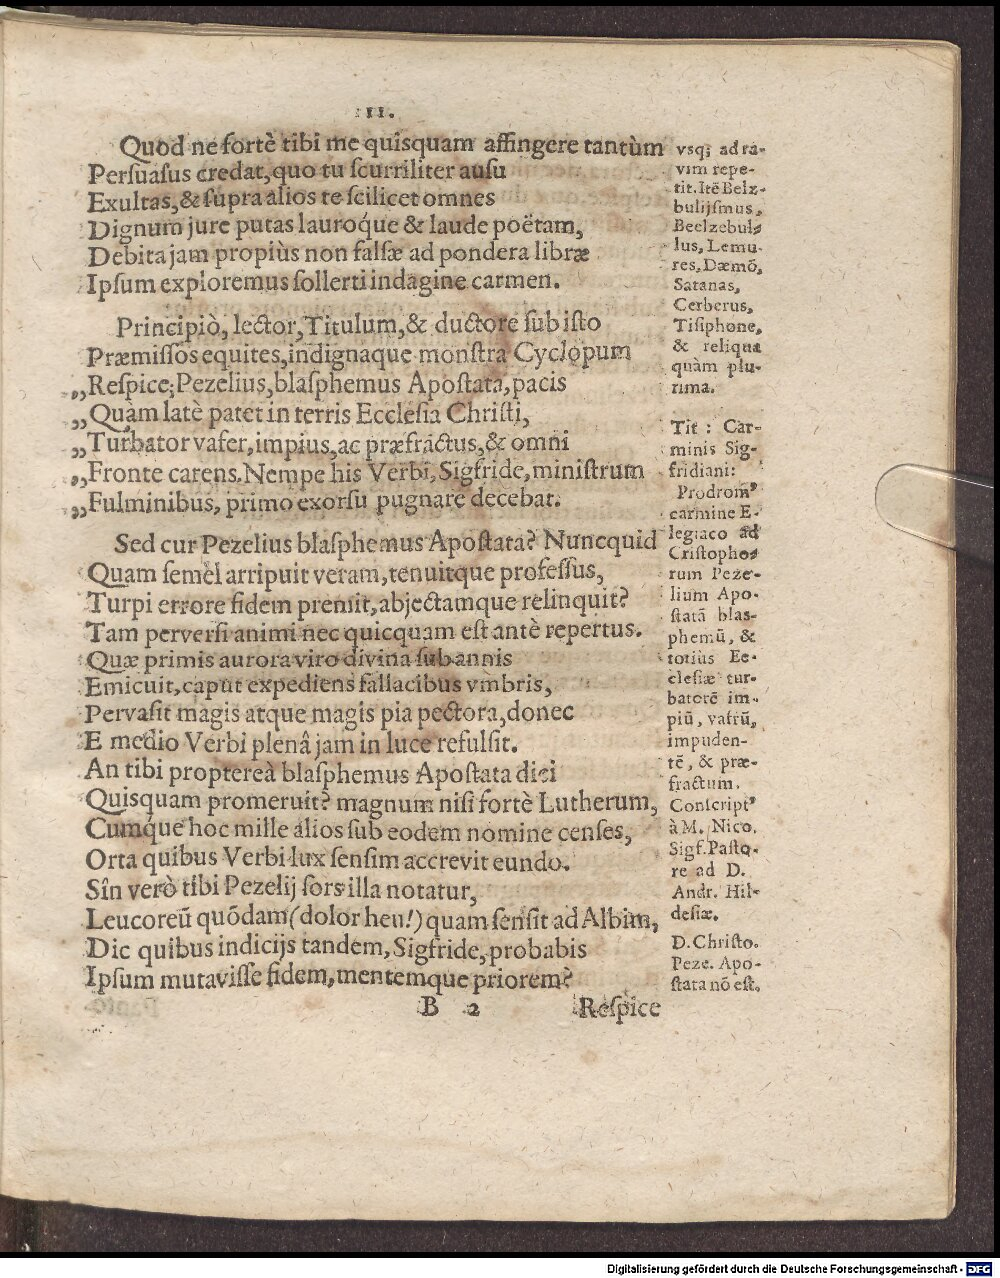 11.
Quod ne fortè tibi me quisquam affingere tantùm
Persuasus credat, quo tu scurriliter ausu
Exultas, & supra alios te scilicet omnes
Dignum jure putas lauroq́ue & laude poëtam,
Debita jam propiùs non falsæ ad pondera libræ
Ipsum exploremus sollerti indagine carmen.
Principiò, lector, Titulum, & ductore sub isto
Præmissos equites, indignaque monstra Cyclopum
„Respice; Pezelius, blasphemus Apostata, pacis
„Quàm latè patet in terris Ecclesia Christi,
„Turbator vafer, impius, ac præfractus, & omni
„Fronte carens. Nempe his Verbi, Sigfride, ministrum
„Fulminibus, primo exorsu pugnare decebat.
Sed cur Pezelius blasphemus Apostata? Nuncquid
Quam semel arripuit veram, tenuitque professus,
Turpi errore fidem premit, abjectamque relinquit?
Tam perversi animi nec quicquam est antè repertus.
Quæ primis aurora viro divina sub annis
Emicuit, caput expediens fallacibus vmbris,
Pervasit magis atque magis pia pectora, donec
E medio Verbi plenâ jam in luce refulsit.
An tibi proptereà blasphemus Apostata dici
Quisquam promeruit? magnum nisi fortè Lutherum,
Cumq́ue hoc mille alios sub eodem nomine censes,
Orta quibus Verbi lux sensim accrevit eundo.
Sîn verò tibi Pezelij sors illa notatur,
Leucoreũ quõdam (dolor heu!) quam sensit ad Albim,
Dic quibus indicijs tandem, Sigfride, probabis
Ipsum mutavisse fidem, mentemque priorem?
B 2 Respice
vsq; ad ra-
vim repe-
tit. Itẽ Belz-
bulijsmus,
Beelzebul-
lus, Lemu-
res, Dæmõ,
Satanas,
Cerberus,
Tisiphone,
& reliqua
quàm plu-
rima.
Tit: Car-
minis Sig-
fridiani:
Prodromꝰ
carmine E-
legiaco ad
Cristopho-
rum Peze-
lium Apo-
statã blas-
phemũ, &
totius Ec-
clesiæ tur-
batorẽ im-
piũ, vafrũ,
impuden-
tẽ, & præ-
fractum.
Conscriptꝰ
à M. Nico.
Sigf. Pasto-
re ad D.
Andr. Hil-
desiæ.
D. Christo.
Peze. Apo-
stata nõ est.
Digitalisierung gefördert durch die Deutsche Forschungsgemeinschaft - DFG